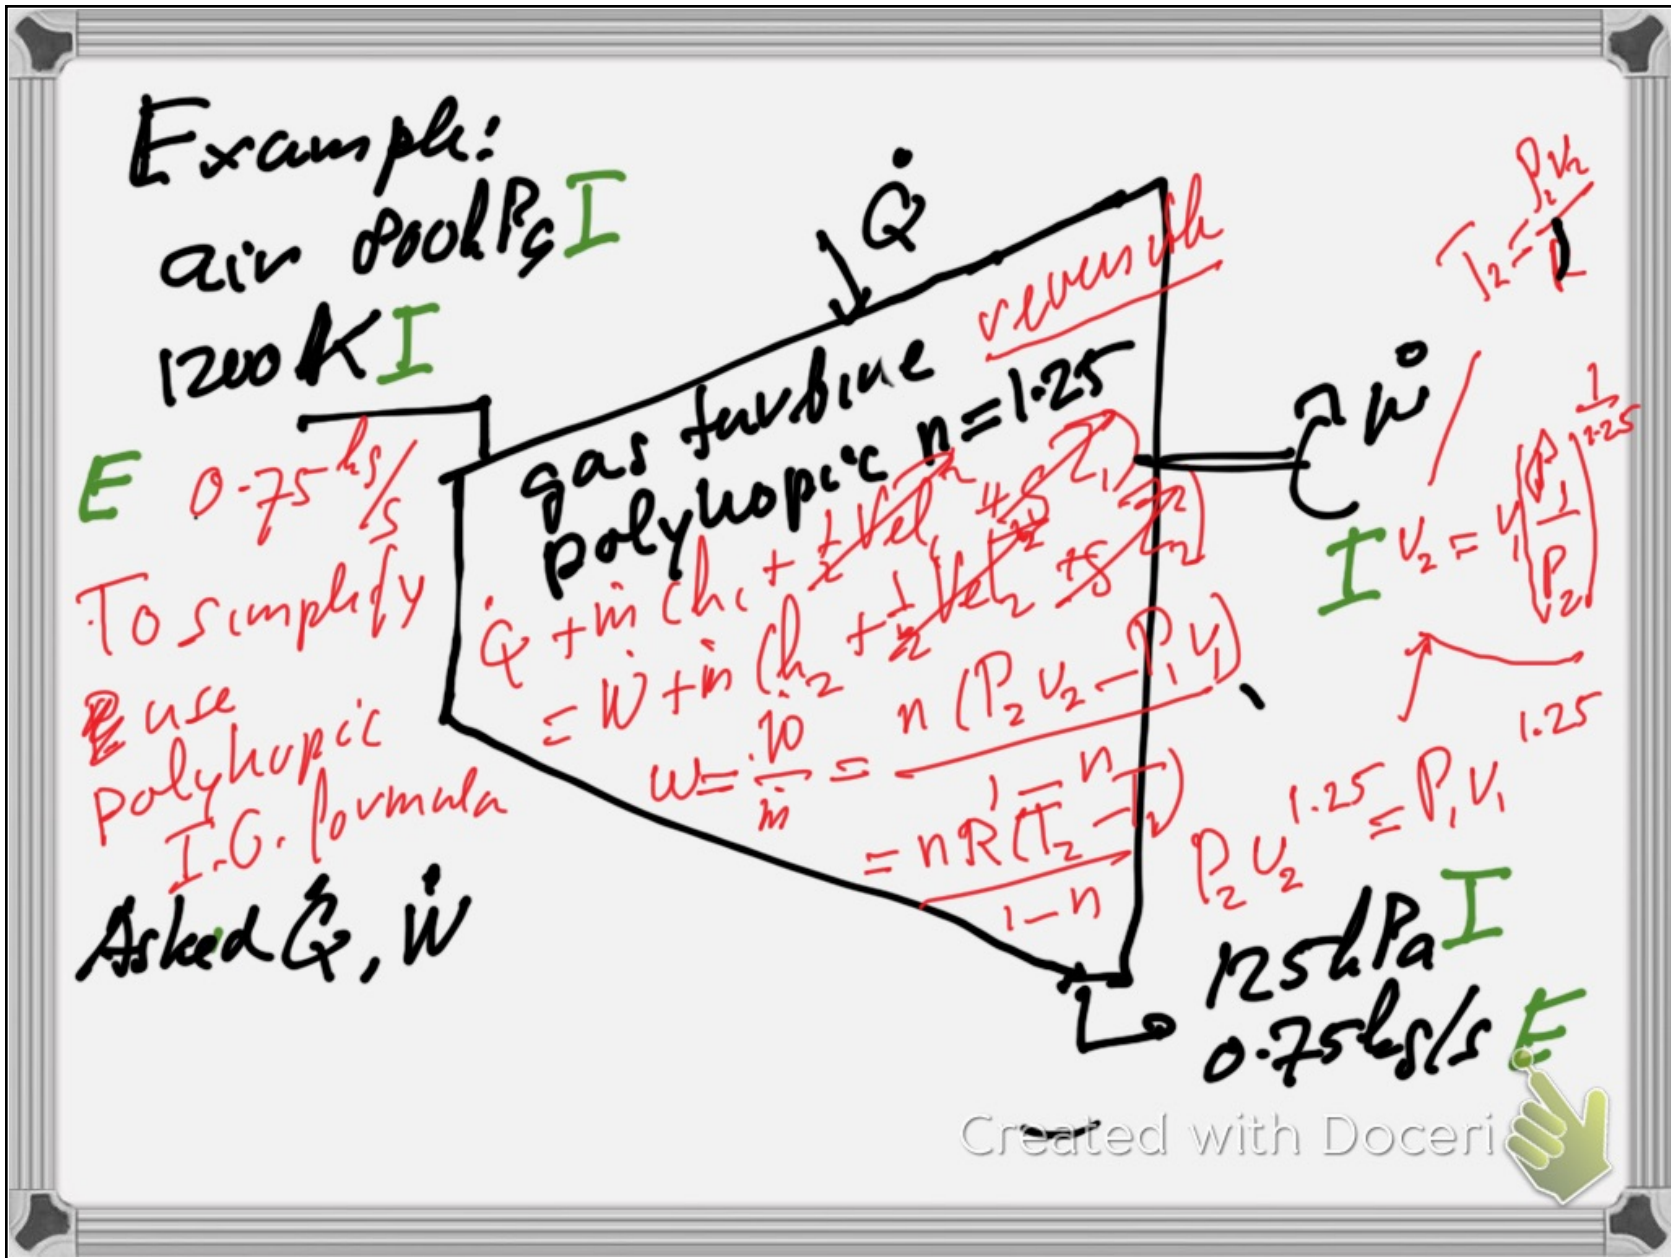 Example:
air 800kPa I
1200 K I
E 0.75 kg/s
To simplify
use
polytropic
I.G. formula
Asked Q̇, Ẇ
Q̇
reversible
gas turbine
polytropic n=1.25
Q̇ + ṁ (h₁ + ½ Vel₁² + g Z₁)
= Ẇ + ṁ (h₂ + ½ Vel₂² + g Z₂)
w = ẇ/ṁ = n (P₂ v₂ − P₁ v₁) / 1 − n
= n R (T₂ − T₁) / 1 − n
Ẇ
T₂ = P₂v₂ / R
I v₂ = v₁ (P₁/P₂)^(1/1.25)
P₂ v₂^1.25 = P₁ v₁^1.25
125 kPa I
0.75 kg/s E
Created with Doceri